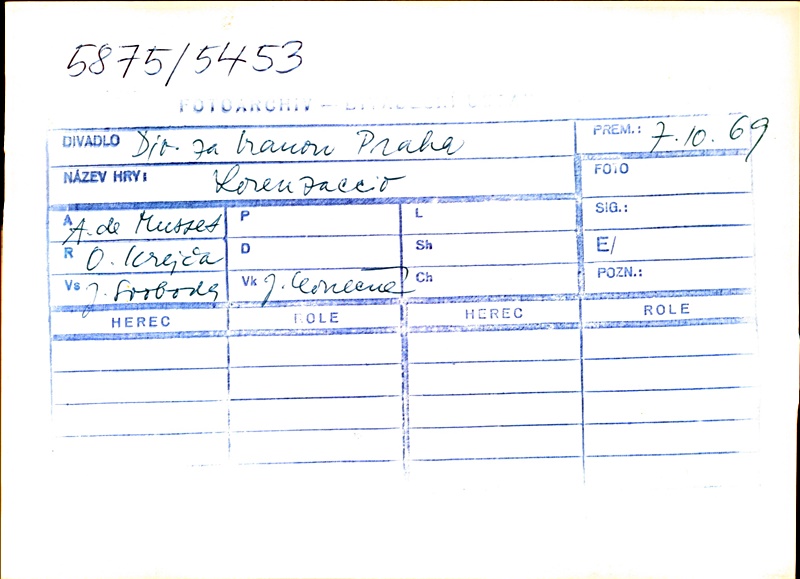 5875/5453
FOTOARCHIV –
DIVADLO Div. za branou Praha PREM.: 7.10.69
NÁZEV HRY: Lorenzaccio FOTO
A A. de Musset P L SIG.:
R O. Krejča D Sh E/
Vs J. Svoboda Vk J. Ch POZN.:
HEREC ROLE HEREC ROLE